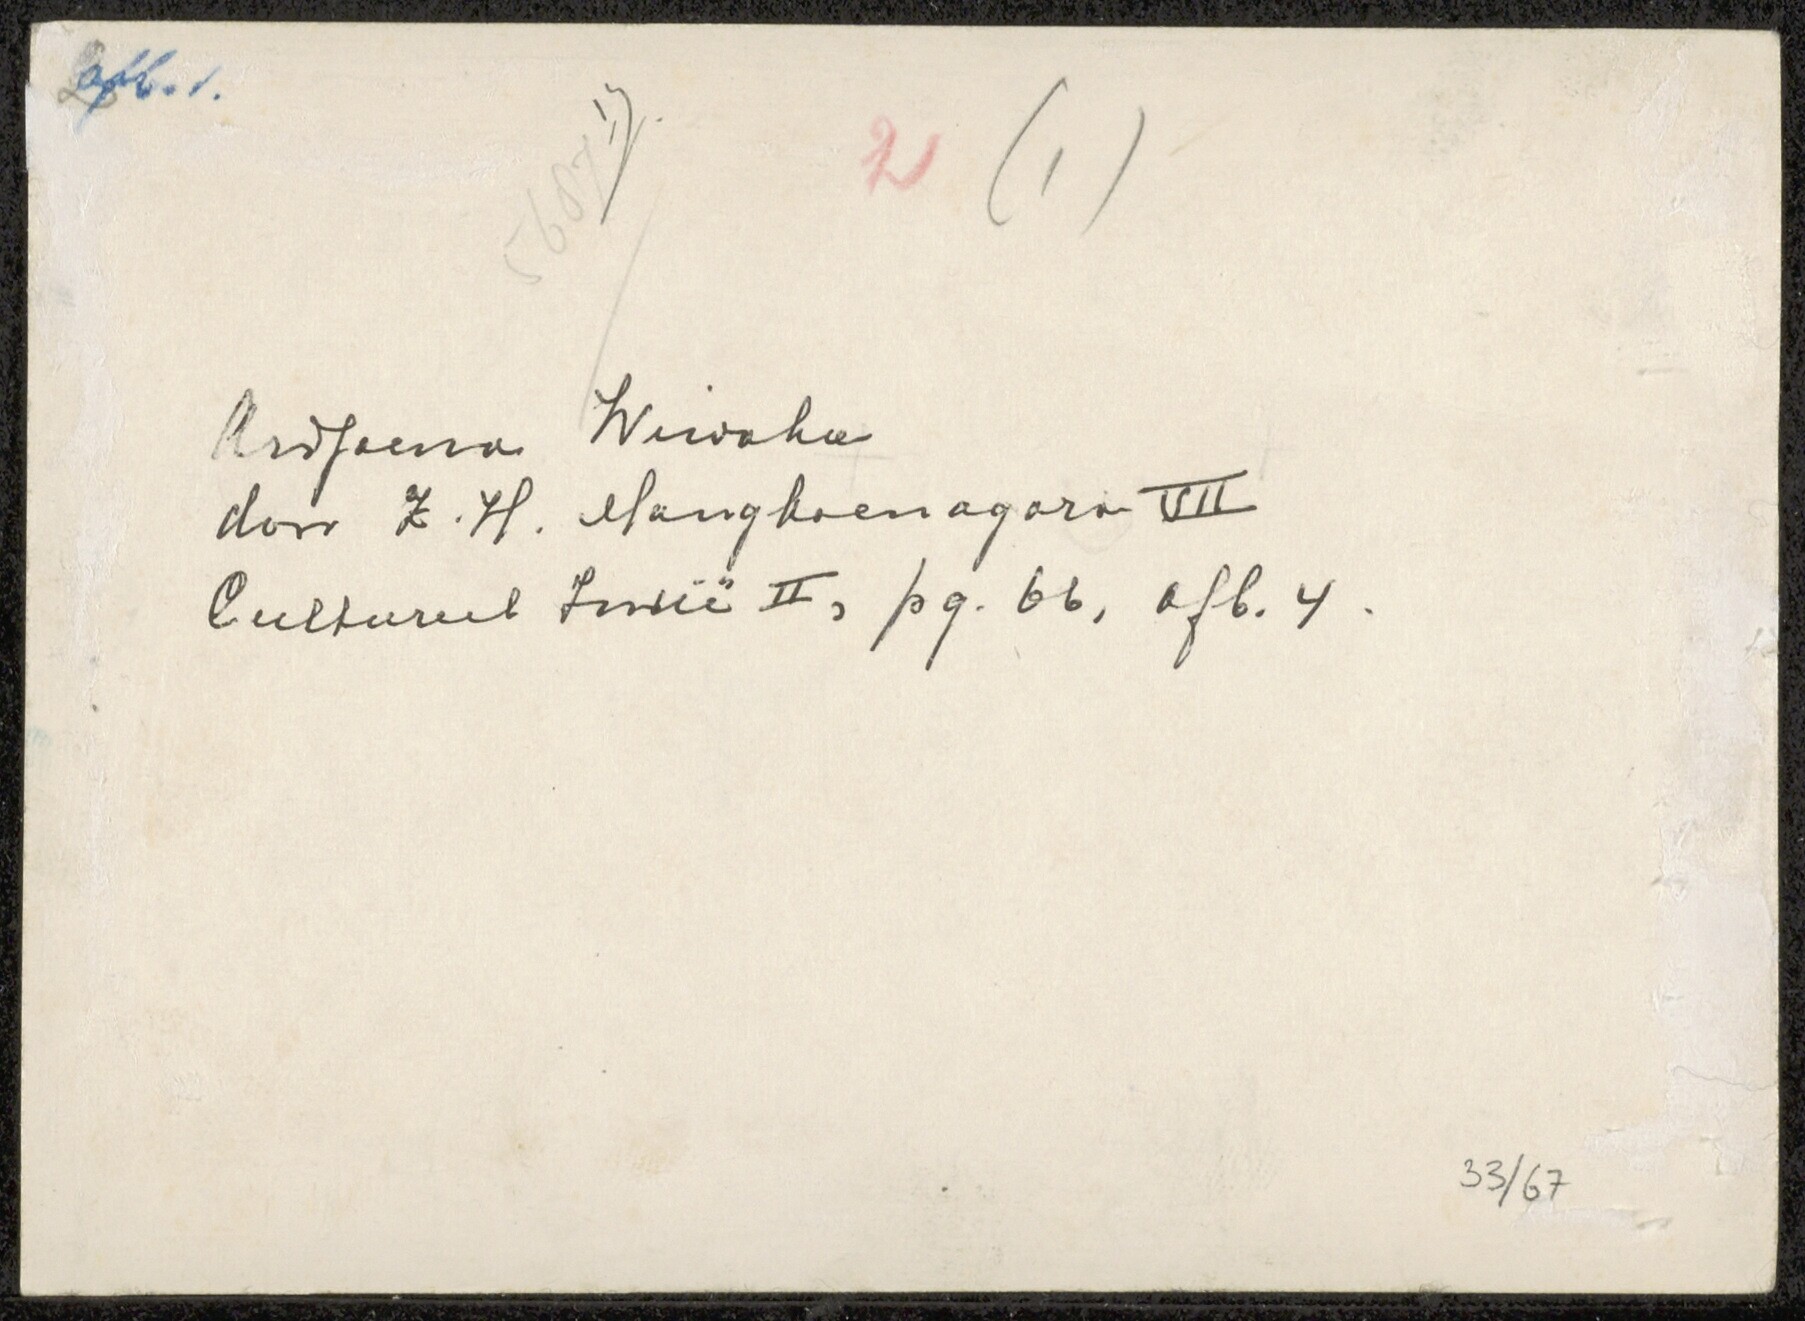 afb. 1.
2 (1)
Ardjoena Wiwaha
door Z.H. Mangkoenagara VII
Cultureel Indië II, pg. 66, afb. 4.
33/67